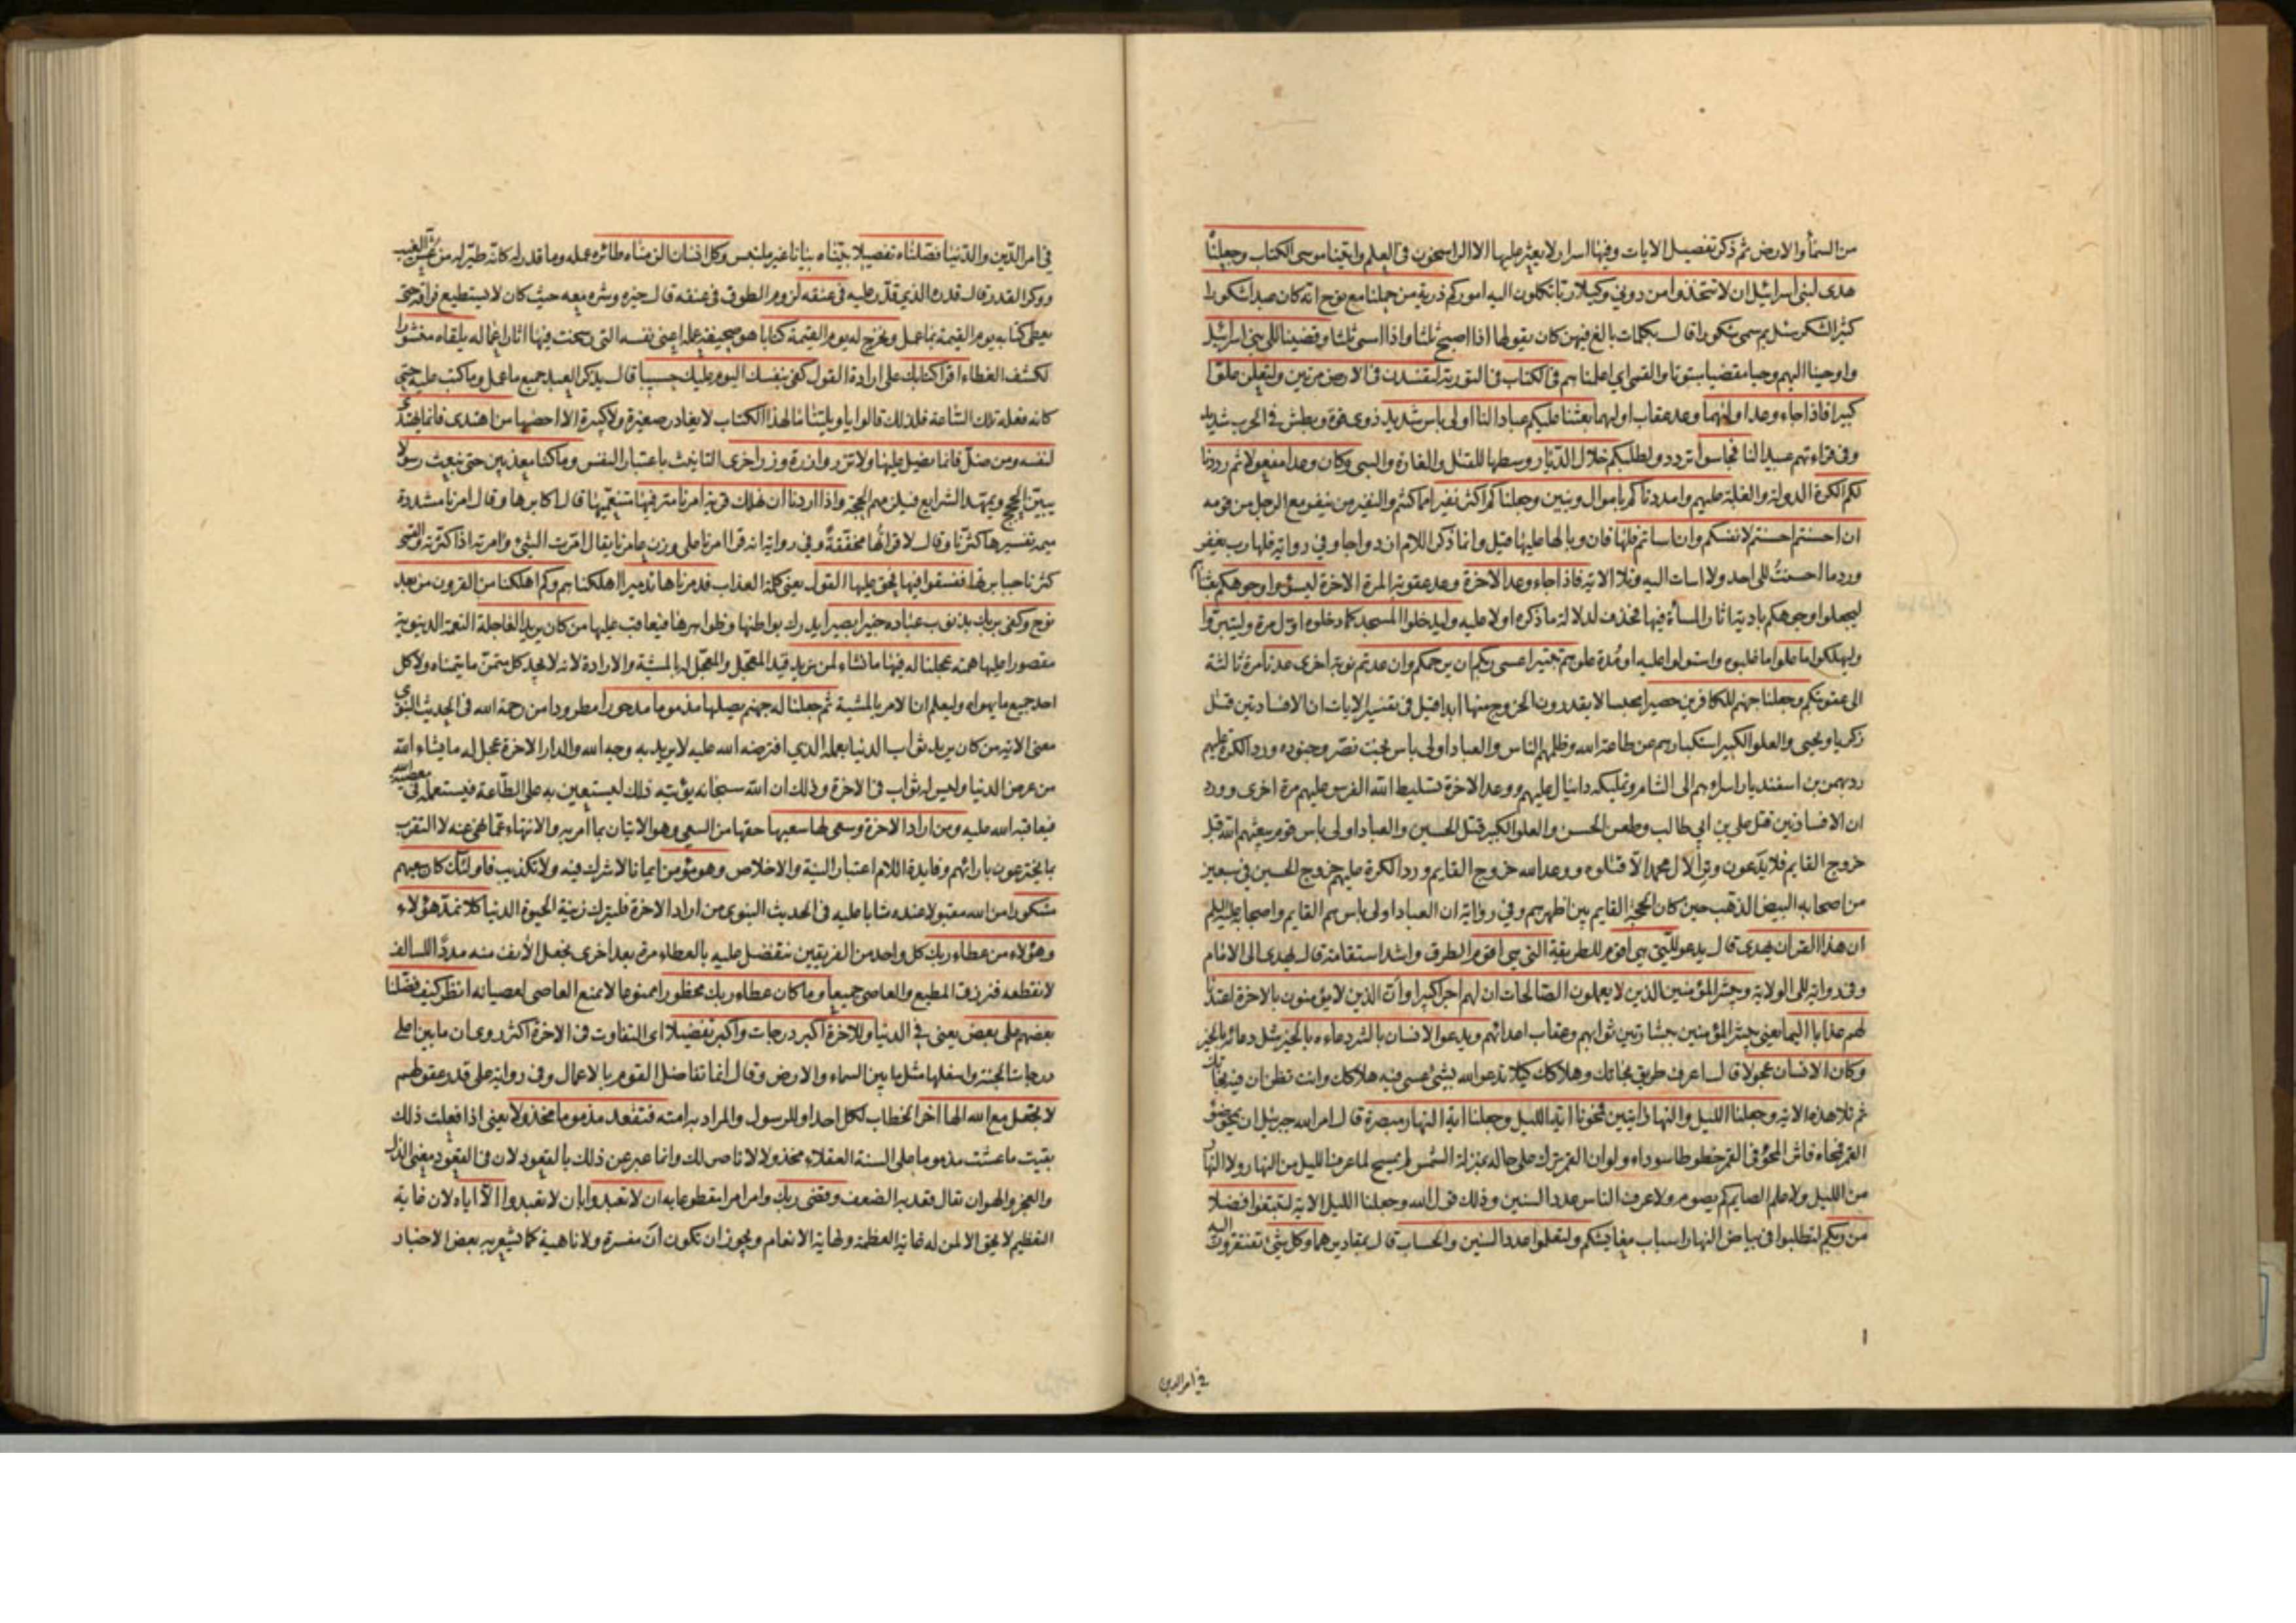 من السمأ والارض ثم ذكر تفصيل الايات وفيها اسرار لا يعثر عليها الا الراسخون في العلم واتينا موسى الكتاب وجعلناه
هدى لبنى اسرائيل ان لا تتخذوا من دوني وكيلا ربا تكلون اليه اموركم ذرية من حملنا مع نوح انه كان عبدا شكورا
كثير الشكر سئل بم سمى شكورا قال بكلمات بالغ فيهن كان يقولها اذا اصبح ثلثا واذا امسى ثلثا وقضينا الى بنى اسرائيل
واوحينا اليهم وحيا مقضيا مبتوتا والقمى اى اعلمناهم في الكتاب في التورية لتفسدن في الارض مرتين ولتعلن علوا
كبيرا فاذا جاء وعد اوليهما وعد عقاب اوليهما بعثنا عليكم عبادا لنا اولى باس شديد ذوى قوة وبطش في الحرب شديد
وفي قراءتهم عبيدا لنا فجاسوا تردد والطلبكم خلال الديار وسطها للقتل والغارة والسبى وكان وعدا مفعولا ثم رددنا
لكم الكرة الدولة والغلبة عليهم وامددناكم باموال وبنين وجعلناكم اكثر نفيرا مما كنتم والنفير من ينفر مع الرجل من قومه
ان احسنتم احسنتم لانفسكم وان اساتم فلها فان وبالها عليها قيل وانما ذكر اللام ازدواجا وفي رواية فلها رب يغفر
وردما احسنت الى احد ولا اسات اليه وتلا الاية فاذا جاء وعد الاخرة وعد عقوبة المرة الاخرة ليسؤا وجوهكم بعثناهم
ليجعلوا وجوهكم بادية اثار المسأة فيها فحذف لدلالة ما ذكر اولا عليه وليدخلوا المسجد كما دخلوه اول مرة وليتبروا
وليهلكوا ما علوا ما غلبوه واستولوا عليه او مدة علوهم تتبيرا عسى ربكم ان يرحمكم وان عدتم نوبة اخرى عدنا مرة ثالثة
الى عقوبتكم وجعلنا جهنم للكافرين حصيرا محبسا لا يقدرون الخروج منها ابدا قيل في تفسير الايات ان الافسادتين قتل
زكريا ويحيى والعلو الكبير استكبارهم عن طاعة الله وظلمهم الناس والعباد اولى باس بخت نصر وجنوده ورد الكرة عليهم
رد بهمن بن اسفنديار اسراءهم الى الشام وتمليكه دانيال عليهم ووعد الاخرة تسليط الله الفرس عليهم مرة اخرى وورد
ان الافسادين قتل على بن ابي طالب وطعن الحسن والعلو الكبير قتل الحسين والعباد اولى باس قوم يبعثهم الله قبل
خروج القايم فلا يدعون وترا لال محمد الا قتلوه ووعد الله خروج القايم ورد الكرة عليهم خروج الحسين في سبعين
من اصحابه البيض المذهب حين كان الحجة القايم بين اظهرهم وفي رواية ان العباد اولى باس هم القايم واصحابه عليهم السلم
ان هذا القران يهدى قال يدعو للتي هى اقوم للطريقة التي هي اقوم الطرق واشد استقامة قال يهدى الى الامام
وفي رواية الى الولاية ويبشر المؤمنين الذين لا يعملون الصالحات ان لهم اجرا كبيرا وان الذين لا يؤمنون بالاخرة اعتدنا
لهم عذابا اليما يعني يبشر المؤمنين ببشارتين ثوابهم وعقاب اعدائهم ويدعو الانسان بالشر دعاءه بالخير مثل دعائه بالخير
وكان الانسان عجولا قال اعرف طريق نجاتك وهلاكك كيلا تدعو الله بشئ عسى فيه هلاكك وانت تظن ان فيه نجاتك
ثم تلا هذه الاية وجعلنا الليل والنهار ايتين فمحونا اية الليل وجعلنا اية النهار مبصرة قال امر الله جبرئيل ان يمحو ضوء
القمر فمحاه فاثر المحو في القمر خطوطا سوداء ولو ان القمر ترك على حاله بمنزلة الشمس لم يمسح لما عرف الليل من النهار ولا النهار
من الليل ولا علم الصايم كم يصوم ولا عرف الناس عدد السنين وذلك قول الله وجعلنا الليل الاية لتبتغوا فضلا
من ربكم لتطلبوا في بياض النهار اسباب معايشكم ولتعلموا عدد السنين والحساب قال بمقاديرهما وكل شئ تفتقرون اليه
في امر الدين
في امر الدين والدنيا فصلناه تفصيلا بيناه بيانا غير ملتبس وكل انسان الزمناه طائره عمله وما قدر له كانه طير اليه من عش الغيب
ووكر القدر قال قدره الذي قدر عليه في عنقه لزوم الطوق في عنقه قال خيره وشره معه حيث كان لا يستطيع فراقه حتى
يعطى كتابه يوم القيمة بما عمل ونخرج له يوم القيمة كتابا هو صحيفة عمله اعنى نفسه التي رسخت فيها اثار اعماله يلقاه منشورا
لكشف الغطاء اقرا كتابك على ارادة القول كفى بنفسك اليوم عليك حسيبا قال يذكر العبد جميع ما عمل وما كتب عليه حتى
كانه فعله تلك الساعة فلذلك قالوا يا ويلتنا ما لهذا الكتاب لا يغادر صغيرة ولا كبيرة الا احصيها من اهتدى فانما يهتدى
لنفسه ومن ضل فانما يضل عليها ولا تزر وازرة وزر اخرى التانيث باعتبار النفس وما كنا معذبين حتى نبعث رسولا
يبين الحجج ويمهد الشرايع فيلزمهم الحجة واذا اردنا ان نهلك قرية امرنا مترفيها متنعميها قال اكابرها وقال امرنا مشددة
ميمه تفسيرها كثرنا وقال لا قراتها مخففة وفي رواية انه قرا امرنا على وزن عامرنا يقال امرت الشئ وامرته اذا كثرته والقمى
كثرنا جبابرتها ففسقوا فيها فحق عليها القول يعنى كلمة العذاب فدمرناها تدميرا اهلكناهم وكم اهلكنا من القرون من بعد
نوح وكفى بربك بذنوب عباده خبيرا بصيرا يدرك بواطنها وظواهرها فيعاقب عليها من كان يريد العاجلة النعمة الدنيوية
مقصورا عليها همه عجلنا له فيها ما نشاء لمن نريد قيد المعجل والمعجل له بالمشية والارادة لانه لا يجد كل متمن ما يتمناه ولا كل
احد جميع ما يهواه وليعلم ان الامر بالمشية ثم جعلنا له جهنم يصليها مذموما مدحورا مطرودا من رحمة الله في الحديث النبوى
معنى الاية من كان يريد ثواب الدنيا بعمله الذي افترضه الله عليه لا يريد به وجه الله والدار الاخرة عجل له ما يشاء الله
من عرض الدنيا وليس له ثواب في الاخرة وذلك ان الله سبحانه يؤتيه ذلك ليستعين به على الطاعة فيستعمله في معصية الله
فيعاقبه الله عليه ومن اراد الاخرة وسعى لها سعيها حقها من السعى وهو الاتيان بما امر به والانتهاء عما نهى عنه لا التقرب
بما يخترعون بارائهم وفايدة اللام اعتبار النية والاخلاص وهو مؤمن ايمانا لا شرك فيه ولا تكذيب فاولئك كان سعيهم
مشكورا من الله مقبولا عنده مثابا عليه في الحديث النبوى من اراد الاخرة فليترك زينة الحيوة الدنيا كلا نمد هؤلاء
وهؤلاء من عطاء ربك كل واحد من الفريقين نتفضل عليه بالعطاء مرة بعد اخرى نجعل الانف منه مددا للسالف
لا نقطعه فنرزق المطيع والعاصى جميعا وما كان عطاء ربك محظورا ممنوعا لا يمنع العاصى لعصيانه انظر كيف فضلنا
بعضهم على بعض يعنى في الدنيا وللاخرة اكبر درجات واكبر تفضيلا اى التفاوت في الاخرة اكثر روى ان ما بين اعلى
درجات الجنة واسفلها مثل ما بين السماء والارض وقال انما تفاضل القوم بالاعمال وفي رواية على قدر عقولهم
لا تجعل مع الله الها اخر الخطاب لكل احد او للرسول والمراد به امته فتقعد مذموما مخذولا يعنى اذا فعلت ذلك
بقيت ما عشت مذموما على السنة العقلاء مخذولا لا ناصر لك وانما عبر عن ذلك بالقعود لان في القعود معنى الذل
والعجز والهوان يقال قعد به الضعف وقضى ربك وامر امرا مقطوعا به ان لا تعبدوا بان لا تعبدوا الا اياه لان غاية
التعظيم لا يحق الا لمن له غاية العظمة ونهاية الانعام ويجوز ان تكون ان مفسرة ولا ناهية كما يشعر به بعض الاخبار